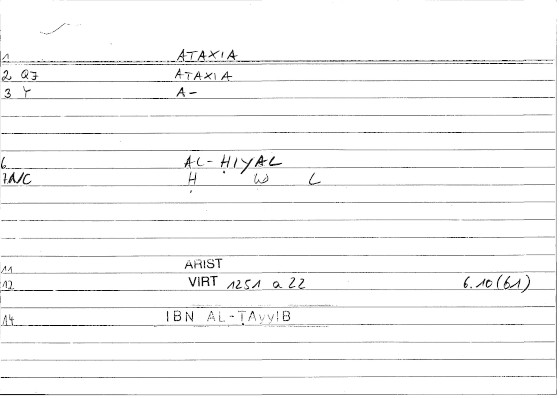 1 ATAXIA
2 QJ ATAXIA
3 Y A-
6 AL-ḤIYAL
7A/C Ḥ W L
11 ARIST
12 VIRT 1251 a 22 6.10(61)
14 IBN AL-ṬAyyIB